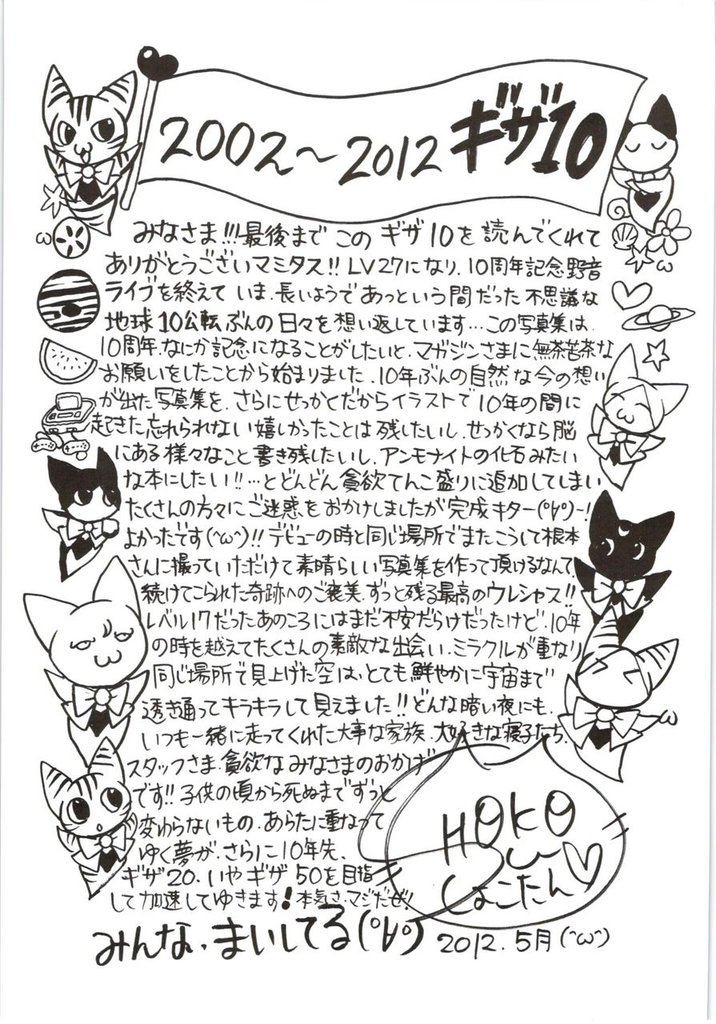 2002〜2012 ギザ10
みなさま!!!最後まで この ギザ10を 読んでくれて
ありがとうございマミタス!! LV27になり、10周年記念野音
ライブを終えて いま、長いようで あっという間だった 不思議な
地球10公転 ぶんの 日々を 想い返しています…この写真集は、
10周年、なにか記念になることがしたいと、マガジンさまに無茶苦茶な
お願いをしたことから始まりました、10年ぶんの自然な今の想い
が出た写真集を、さらにせっかくだからイラストで10年の間に
起きた忘れられない嬉しかったことは残したいし、せっかくなら脳
にある様々なこと書き残したいし、アンモナイトの化石みたい
な本にしたい!!…とどんどん貪欲てんこ盛りに追加してしまい
たくさんの方々にご迷惑をおかけしましたが完成キター(°∀°)ー!
よかったです(^ω^)!! デビューの時と同じ場所でまたこうして根本
さんに撮っていただけて素晴らしい写真集を作って頂けるなんて
続けてこられた奇跡へのご褒美、ずっと残る最高のウレシャス!!
レベル17だったあのころにはまだ不安だらけだったけど、10年
の時を越えてたくさんの素敵な出会い、ミラクルが重なり
同じ場所で見上げた空は、とても鮮やかに宇宙まで
透き通ってキラキラして見えました!!どんな暗い夜にも、
いつも一緒に走ってくれた大事な家族、大好きな寝子たち、
スタッフさま、貪欲なみなさまのおかげ
です!!子供の頃から死ぬまでずっと
変わらないもの、あらたに重なって
ゆく夢が、さらに10年先、
ギザ20、いやギザ50を目指
して加速してゆきます!本気さ、マジだぜ!
みんな、まいしてる(°∀°)
HOKO
しょこたん♡
2012.5月(^ω^)